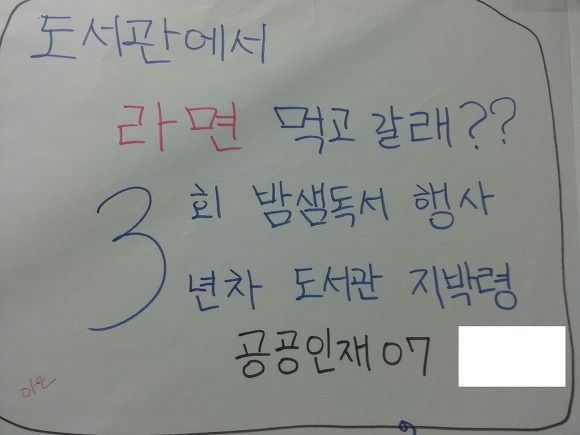 도서관에서
라면 먹고 갈래??
3
회 밤샘독서 행사
년차 도서관 지박령
공공인재07